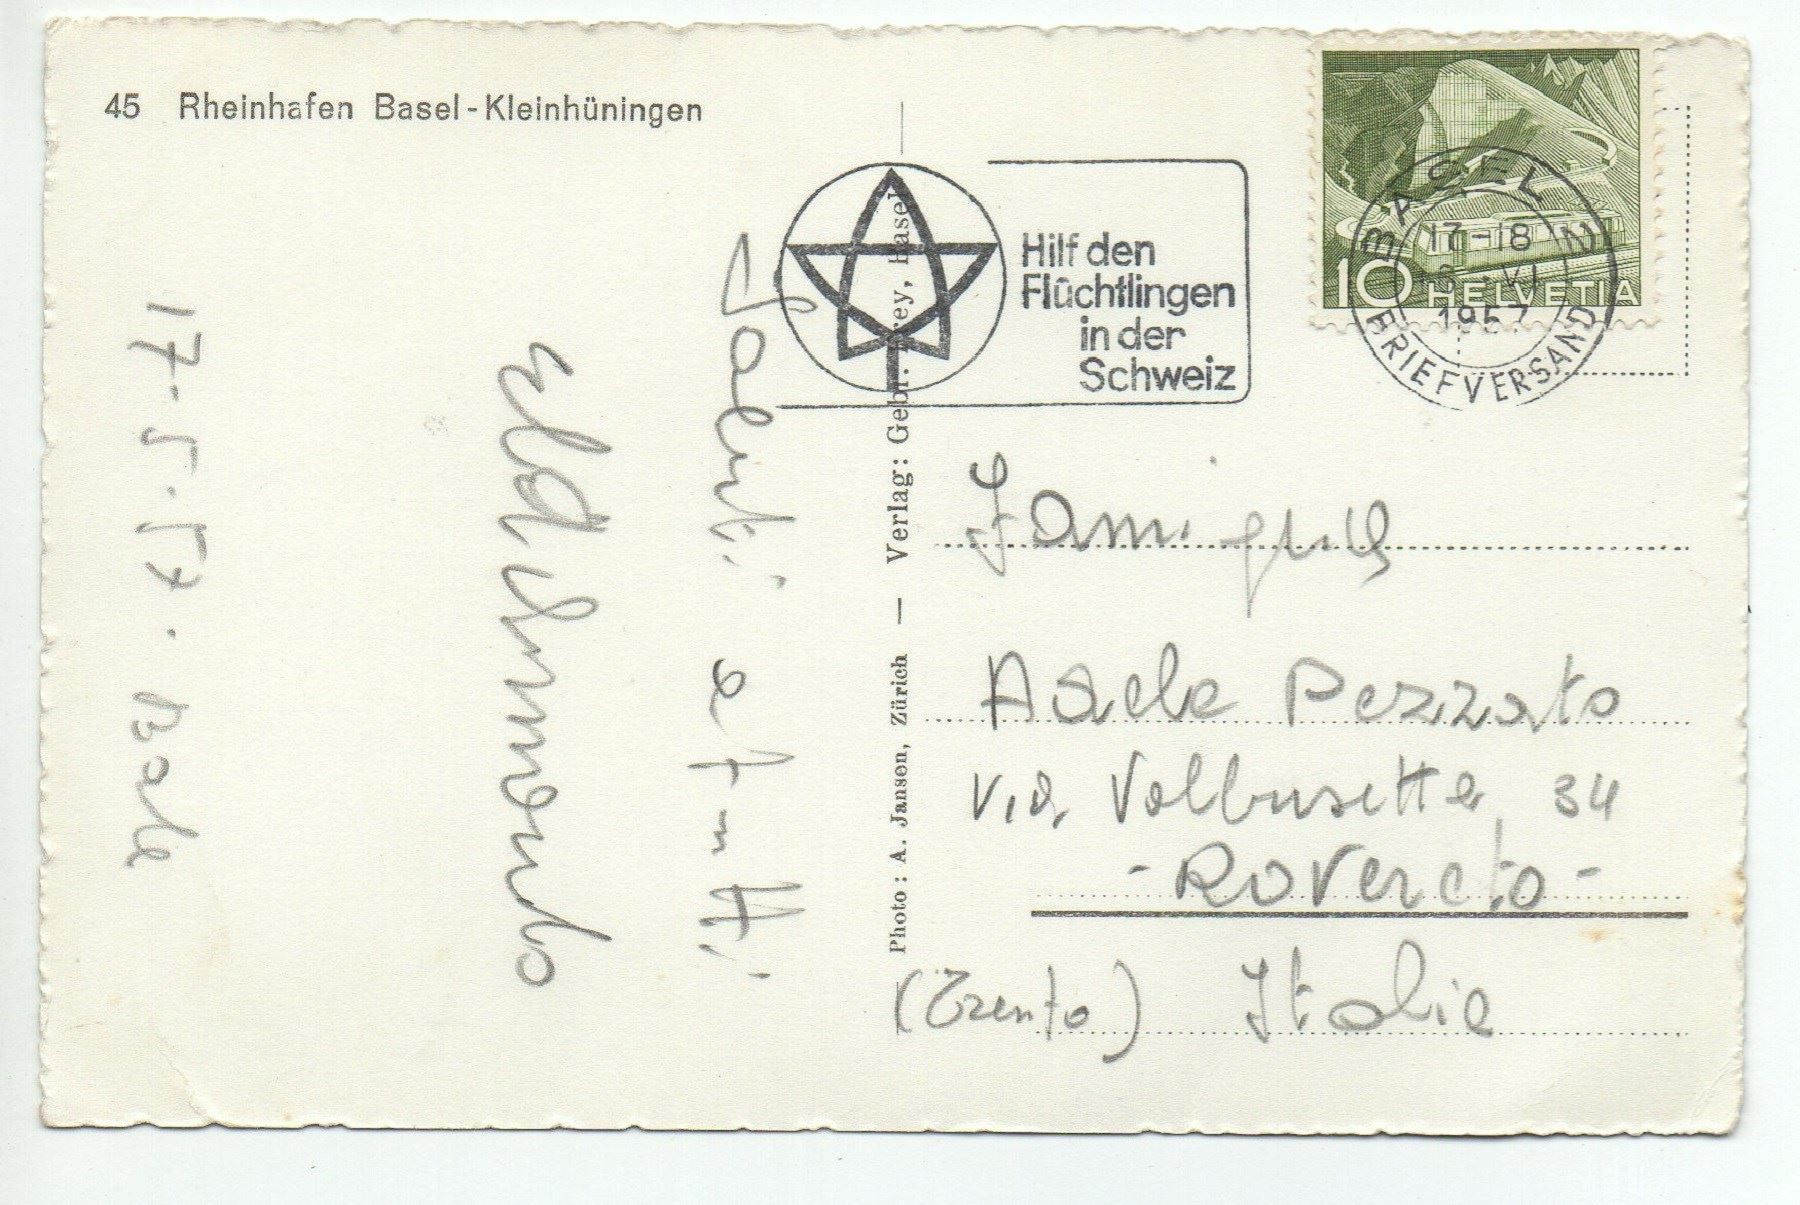 45 Rheinhafen Basel-Kleinhüningen
Hilf den
Flüchtlingen
in der
Schweiz
10 HELVETIA
BASEL 2
17-18
VI
1957
BRIEFVERSAND
17-5.57. Bale
Eldiomondo
Saluti e
Photo: A. Jansen, Zürich — Verlag: Gebr. Frey, Basel
Famiglia
Adele Pezzato
Via Valbusetta 34
- Rovereto -
(Trento) Italia